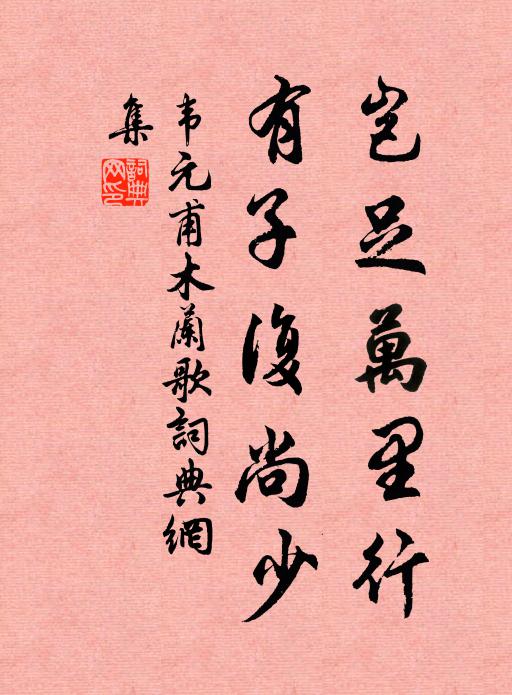 岂足萬里行
有子復尚少
韦元甫木蘭歌詞典網
集
詞典网印